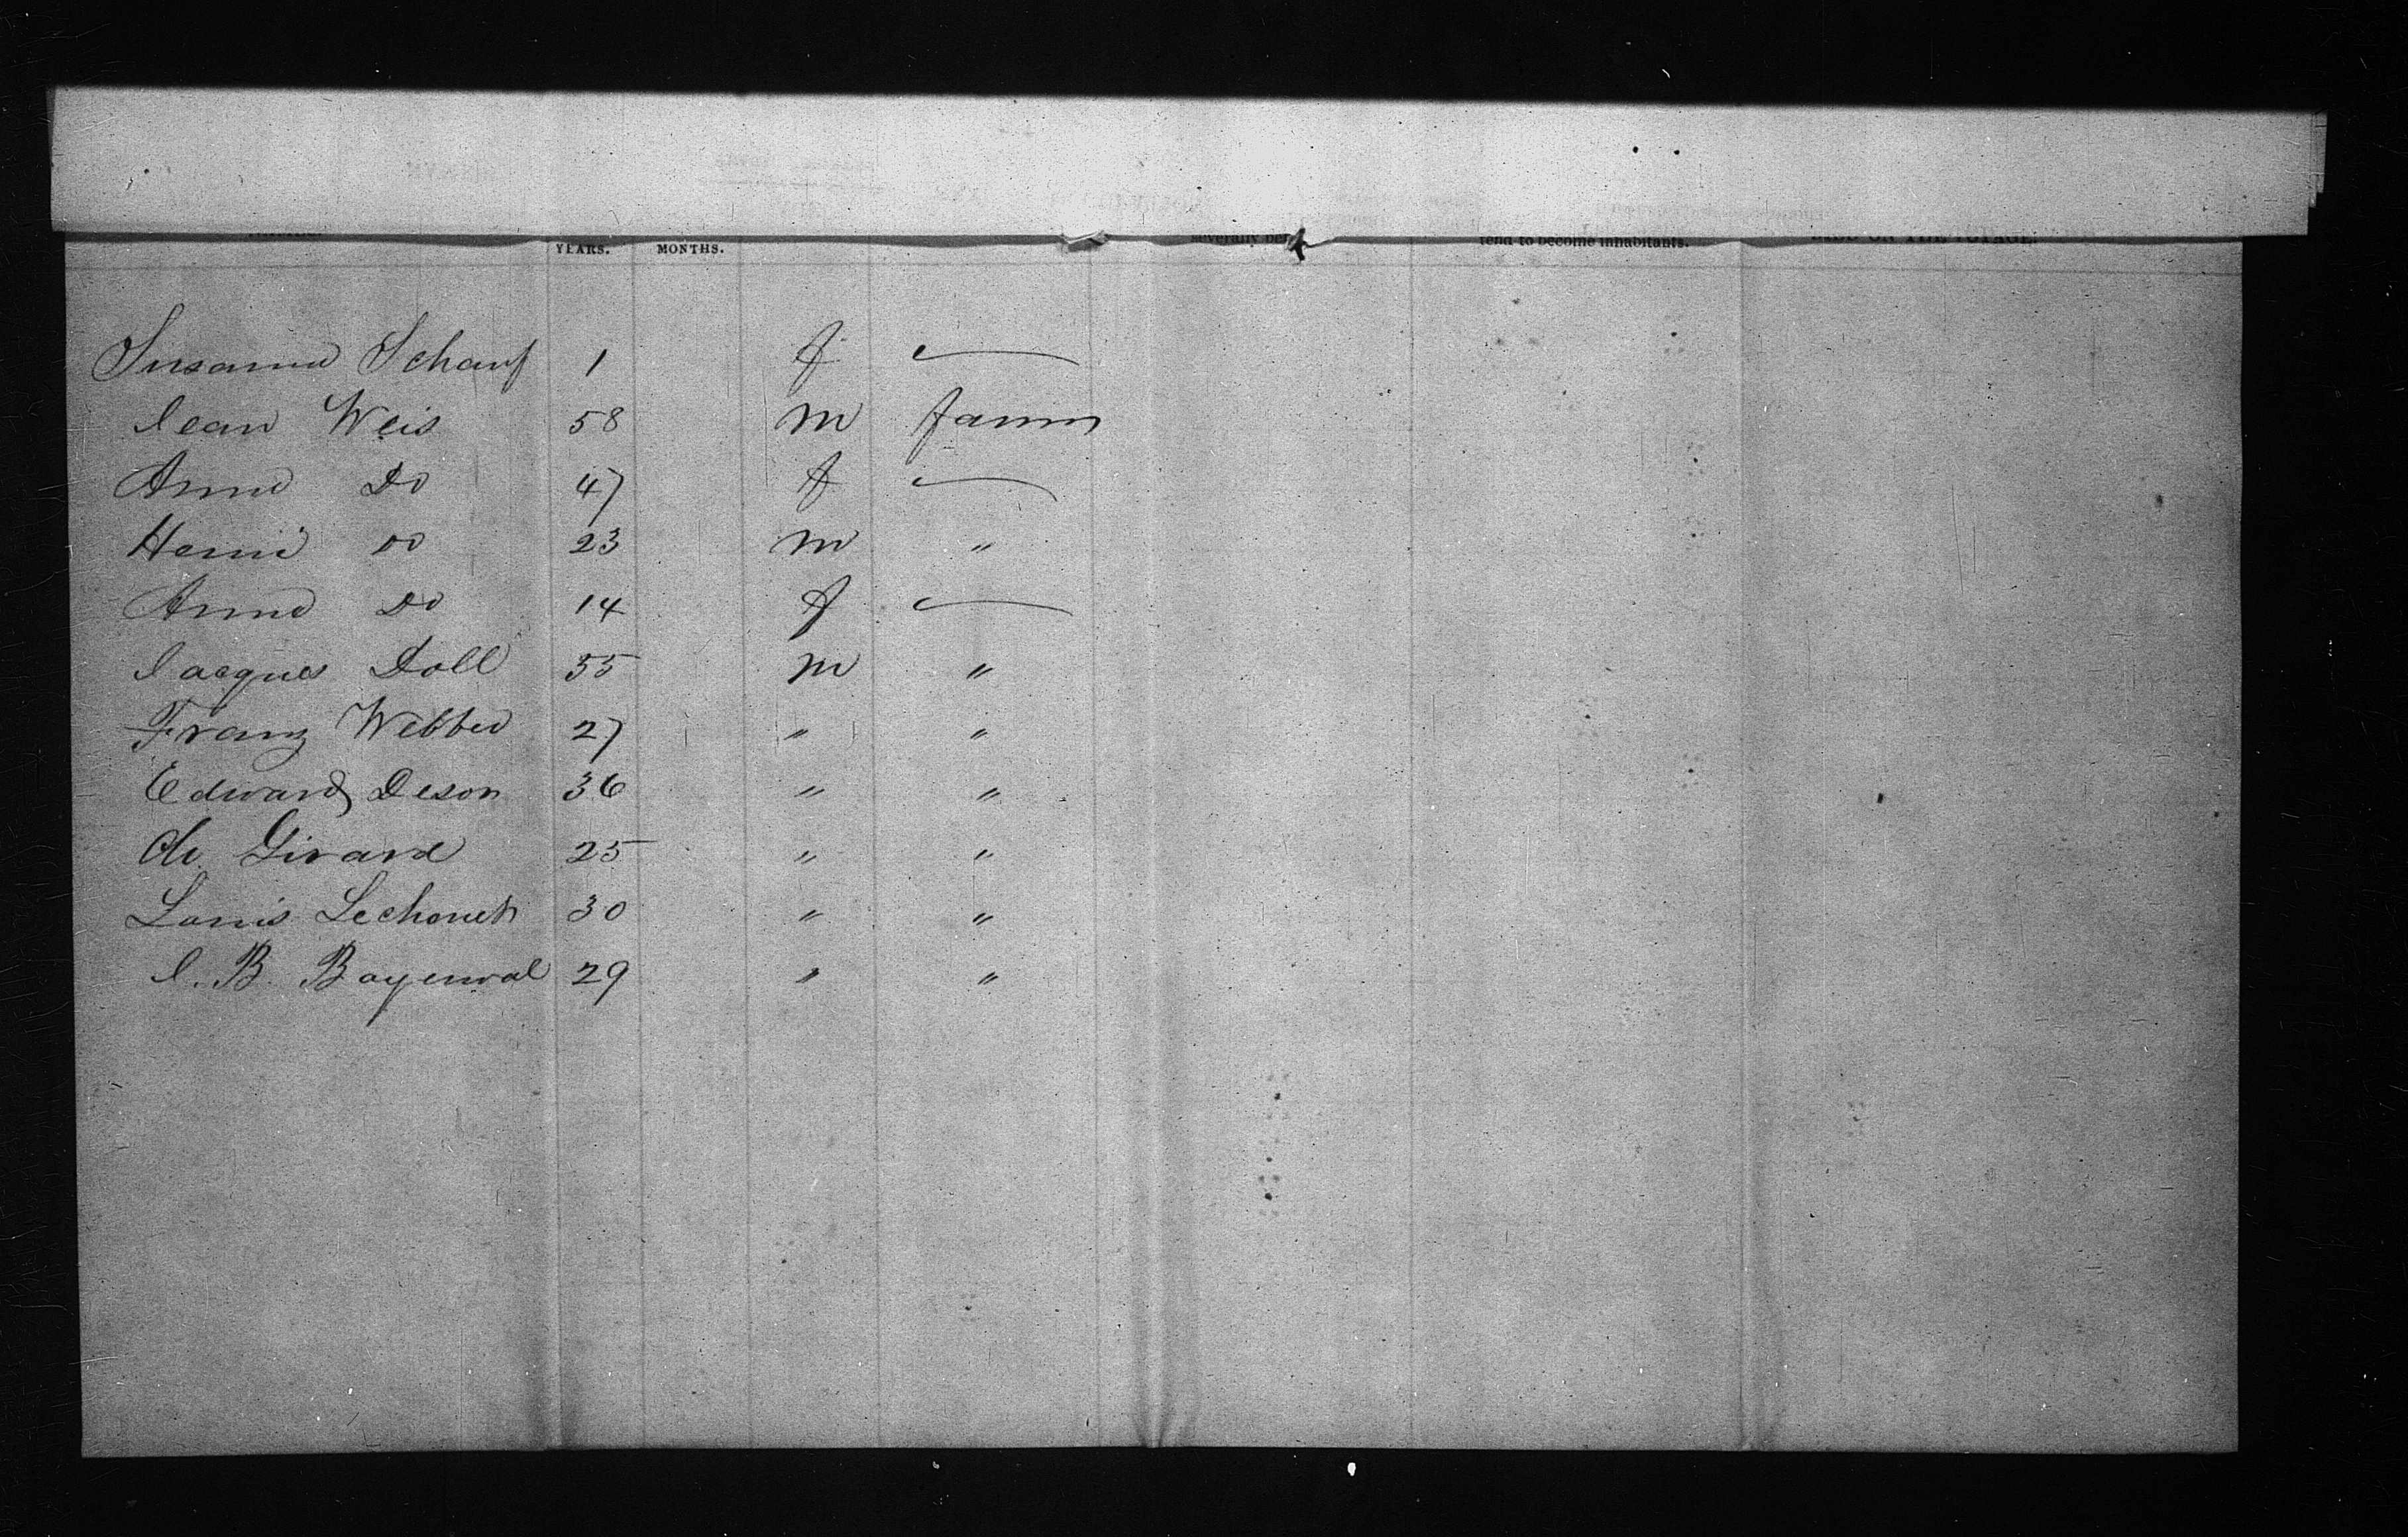 YEARS. MONTHS. severally tend to become inhabitants. DIED ON THE VOYAGE.
Susanna Scharf 1 f
Jean Weis 58 m farmer
Anna Do 47 f
Henri Do 23 m "
Anna Do 14 f
Jacques Doll 55 m "
Franz Webber 27 " "
Edward Deson 36 " "
Ch. Girard 25 " "
Louis 30 " "
J. B. Bayerwal 29 " "